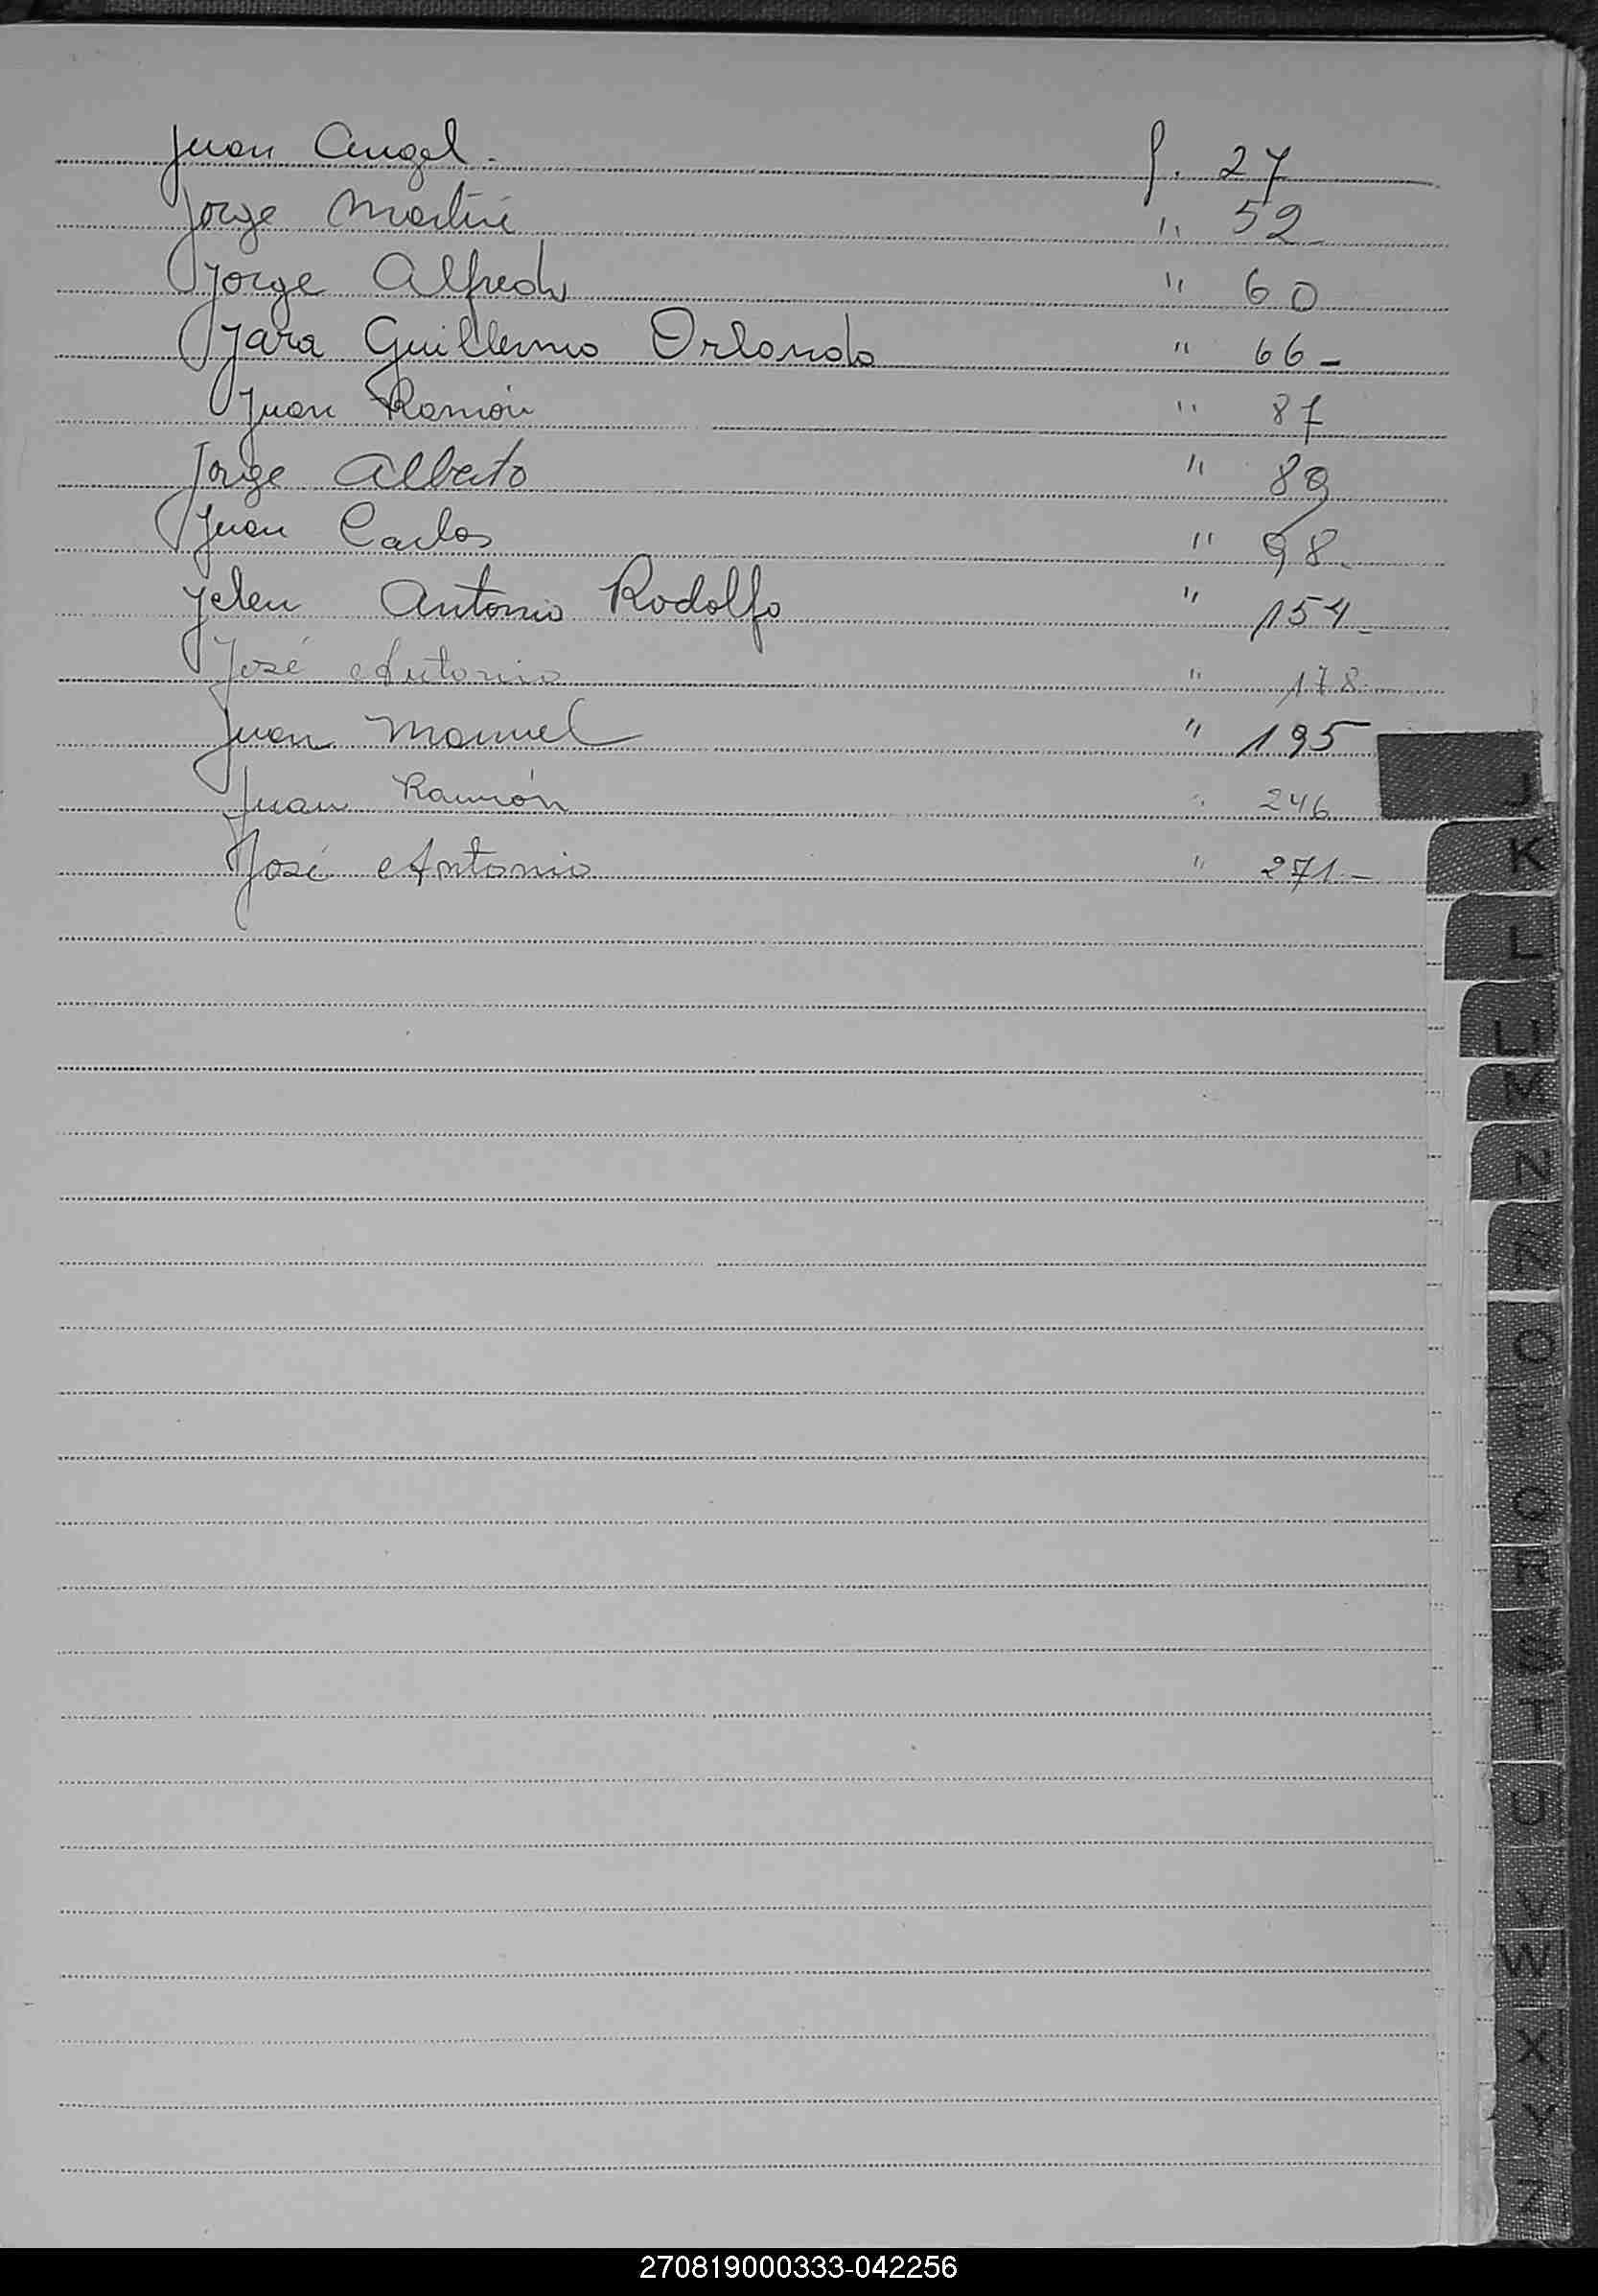 Juan Angel. f. 27
Jorge Martín " 52
Jorge Alfredo " 60
Jara Guillermo Orlando " 66
Juan Ramón " 87
Jorge Alberto " 89
Juan Carlos " 98
Jelen Antonio Rodolfo " 154
José Antonio " 178
Juan Manuel " 195
Juan Ramón " 246
José Antonio " 271
J
K
L
LL
M
N
Ñ
O
P
Q
R
S
T
U
V
W
X
Y
Z
270819000333-042256